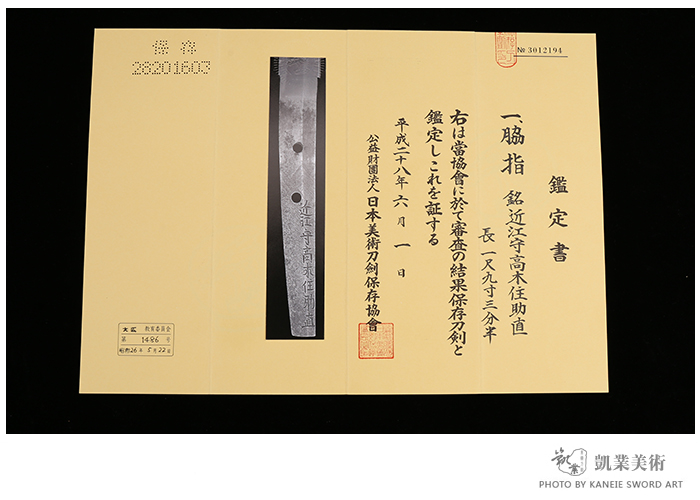 № 3012194
鑑定書
一、脇指 銘 近江守高木住助直
長 一尺九寸三分半
右は當協會に於て審査の結果保存刀剣と
鑑定しこれを証する
平成二十八年 六月 一日
公益財團法人 日本美術刀劍保存協會
近江守高木住助直
保存
28201603
教育委員会
第 1486 号
昭和26年 5月22日
凱業美術
PHOTO BY KANEIE SWORD ART